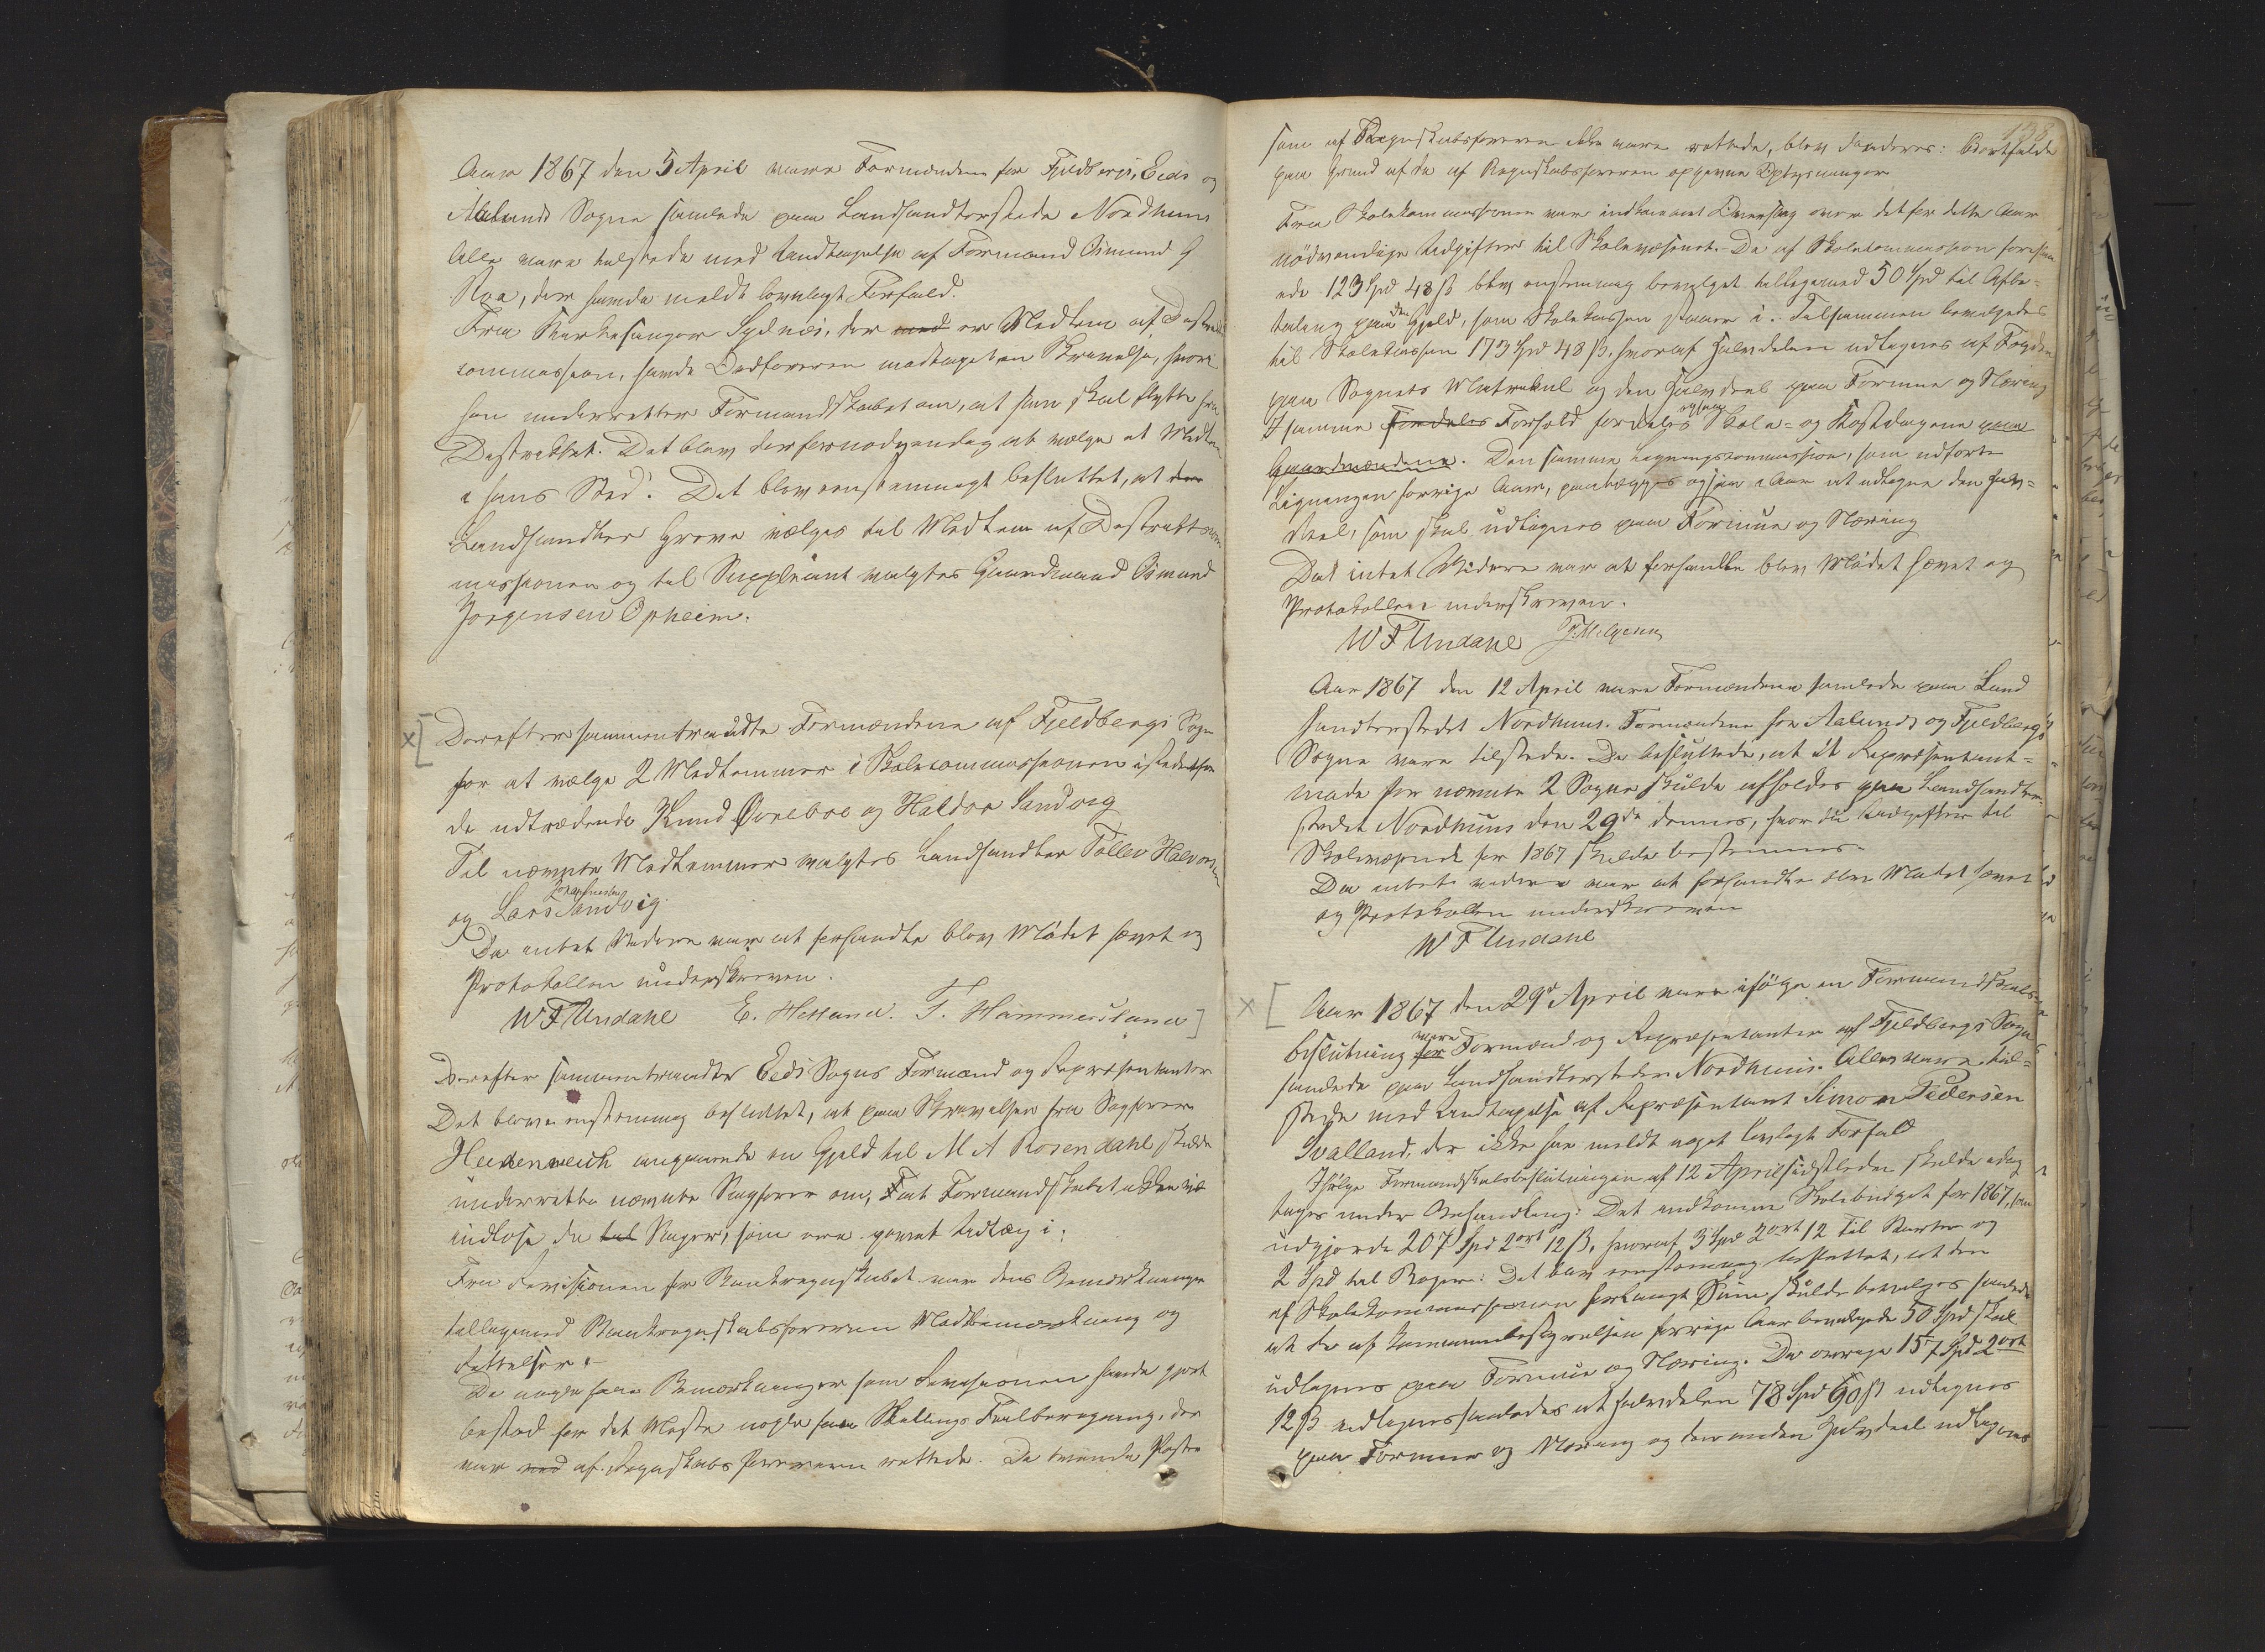 Aar 1867 den 5 April vare Formændene for Fjeldbergs, Eeds og
Aalunds Sogne samlede paa Landhandlerstedet Nordhuus
Alle vare tilstede med Undtagelse af Formand Asmund
Roa, der havde meldt lovligt Forfald.
Fra Kirkesanger Sydnæs, der er Medlem af Distrikts
commission, havde Ordføreren modtaget en Skrivelse, hvori
han underretter Formandskabet om, at han skal flytte fra
Distriktet. Det blev derfor nødvendig at vælge et Medlem
i hans Sted. Det blev eenstemmigt besluttet, at
Landhandler Grove vælges til Medlem af Distriktscom
missionen og til Suppleant valgtes Gaardmand Asmund
Jørgensen Opheim.
Derefter sammentraadte Formændene af Fjeldbergs Sogn
for at vælge 2 Medlemmer i Skolecommissionen istedetfor
de udtrædende Knud Øvrebøe og Haldor Sandvig
Til nævnte Medlemmer valgtes Landhandler Tollev Halvorsen
og Lars Johannesen Sandvig.
Da intet Videre var at forhandle blev Mødet hævet og
Protokollen underskreven.
W F Undahl E. Hetland. T. Hammersland
Derefter sammentraadte Eeds Sogns Formænd og Repræsentanter
Det blev eenstemmig besluttet, at paa Skrivelsen fra Sagfører
Heidenreich angaaende en Gjeld til M A Rosendahl skulde
underrette nævnte Sagfører om, at Formandskabet ikke vil
indløse de Sager, som ere gjort Udlæg i.
Fra Revisionen for Bankregnskabet var dens Bemærkninger
tilligemed Bankregnskabsførerens Modbemærkning og
Rettelser.
De nogle faa Bemærkninger som Revisionen havde gjort
bestod for det Meste nogle faa Skillings Feilberegning, der
var af Regnskabsføreren rettede. De tvende Poster
138
som af Regnskabsføreren ikke vare rettede, blev decideres: Bortfalde
paa Grund af de af Regnskabsføreren opgivne Oplysninger
Fra Skolekommissionen var indkommet Overslag over det for dette Aar
nødvendige Udgifter til Skolevæsenet. De af Skolecommission foreslaa
ede 123 Spd 48 ß blev enstemmig bevilget tilligemed 50 Spd til Afbe=
taling paa den Gjeld, som Skolekassen staaer i. Tilsammen bevilgedes
til Skolekassen 173 Spd 48 ß, hvoraf Halvdelen udlignes af
paa Sognets Matrikul og den Halvdeel paa Formue og Næring
I samme Forhold fordeles ogsaa Skole= og Kostdagene paa
Gaardmændene. Den samme Ligningscommission, som udførte
Ligningen forrige Aar, paalægges ogsaa i Aar at udligne den Halv=
deel, som skal udlignes paa Formue og Næring
Da intet Videre var at forhandle blev Mødet hævet og
Protokollen underskreven.
W F Undahl
Aar 1867 den 12 April vare Formændene samlede paa Land
handlerstedet Nordhuus. Formændene for Aalunds og Fjeldbergs
Sogne vare tilstede. De besluttede, at et Repræsentant=
møde for nævnte 2 Sogne skulde afholdes paa Landhandler=
stedet Nordhuus den 29de dennes, hvor da Udgifter til
Skolevæsenet for 1867 skulde bestemmes.
Da intet videre var at forhandle blev Mødet hævet
og Protokollen underskreven
W F Undahl
Aar 1867 den 29de April vare ifølge en Formandskabs=
beslutning vare Formænd og Repræsentanter af Fjeldbergs Sogn
samlede paa Landhandlerstedet Nordhuus. Alle vare til=
stede med Undtagelse af Repræsentant Simon Pedersen
Svalland, der ikke har meldt noget lovligt Forfald
Ifølge Formandskabsbeslutningen af 12 April sidstleden skulde idag
tages under Behandling: Det indkomne Skolebudget for 1867, som
udgjorde 207 Spd 2 ort 12 ß, hvoraf 3 Spd 2 ort 12 til Karter og
2 Spd til Bøger: Det blev eenstemmig besluttet, at den
af Skolekommissionen forlangte Sum skulde bevilges saaledes
at de af Kommunebestyrelsen forrige Aar bevilgede 50 Spd skal
udlignes paa Formue og Næring. De øvrige 157 Spd 2 ort
12 ß udlignes saaledes at Halvdelen 78 Spd 90 ß udlignes
paa Formue og Næring og den anden Halvdeel udlignes